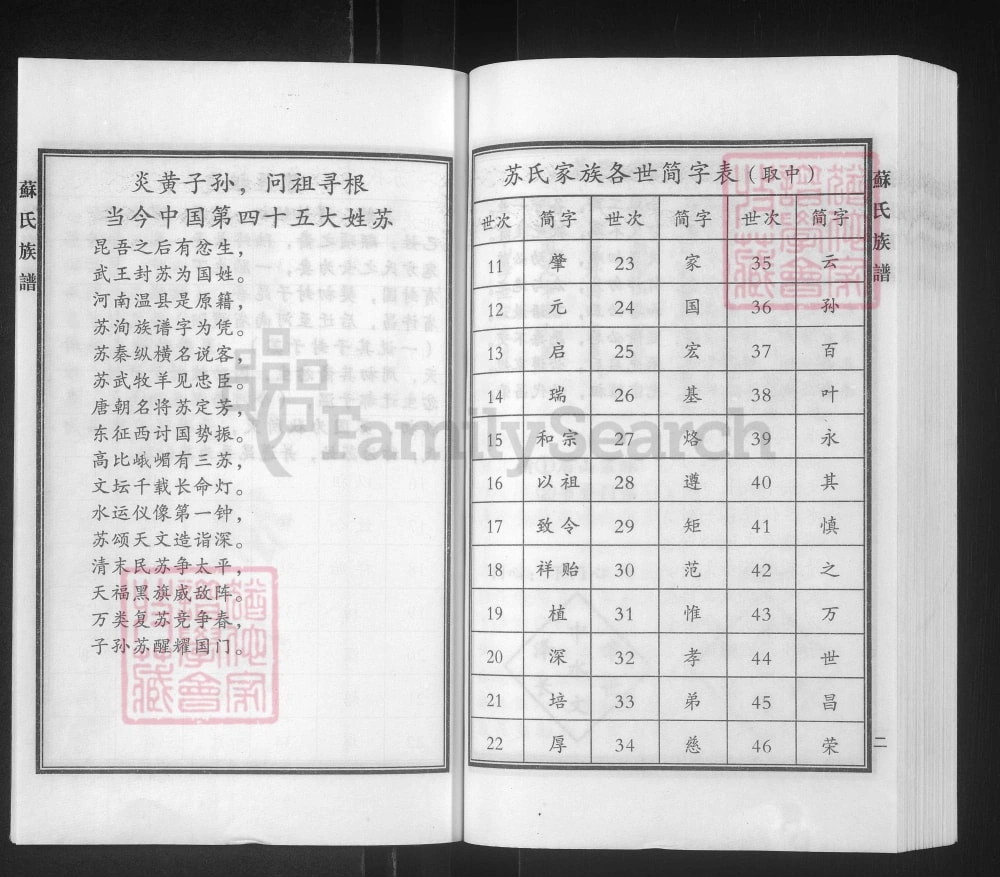 蘇氏族譜
炎黄子孙，问祖寻根
当今中国第四十五大姓苏
昆吾之后有忿生，
武王封苏为国姓。
河南温县是原籍，
苏洵族谱字为凭。
苏秦纵横名说客，
苏武牧羊见忠臣。
唐朝名将苏定芳，
东征西讨国势振。
高比峨嵋有三苏，
文坛千载长命灯。
水运仪像第一钟，
苏颂天文造诣深。
清末民苏争太平，
天福黑旗威敌阵。
万类复苏竞争春，
子孙苏醒耀国门。
苏氏家族各世简字表（取中）
世次 简字 世次 简字 世次 简字
11 肇 23 家 35 云
12 元 24 国 36 孙
13 启 25 宏 37 百
14 瑞 26 基 38 叶
15 和宗 27 烙 39 永
16 以祖 28 遵 40 其
17 致令 29 矩 41 慎
18 祥贻 30 范 42 之
19 植 31 惟 43 万
20 深 32 孝 44 世
21 培 33 弟 45 昌
22 厚 34 慈 46 荣
蘇氏族譜
二
FamilySearch